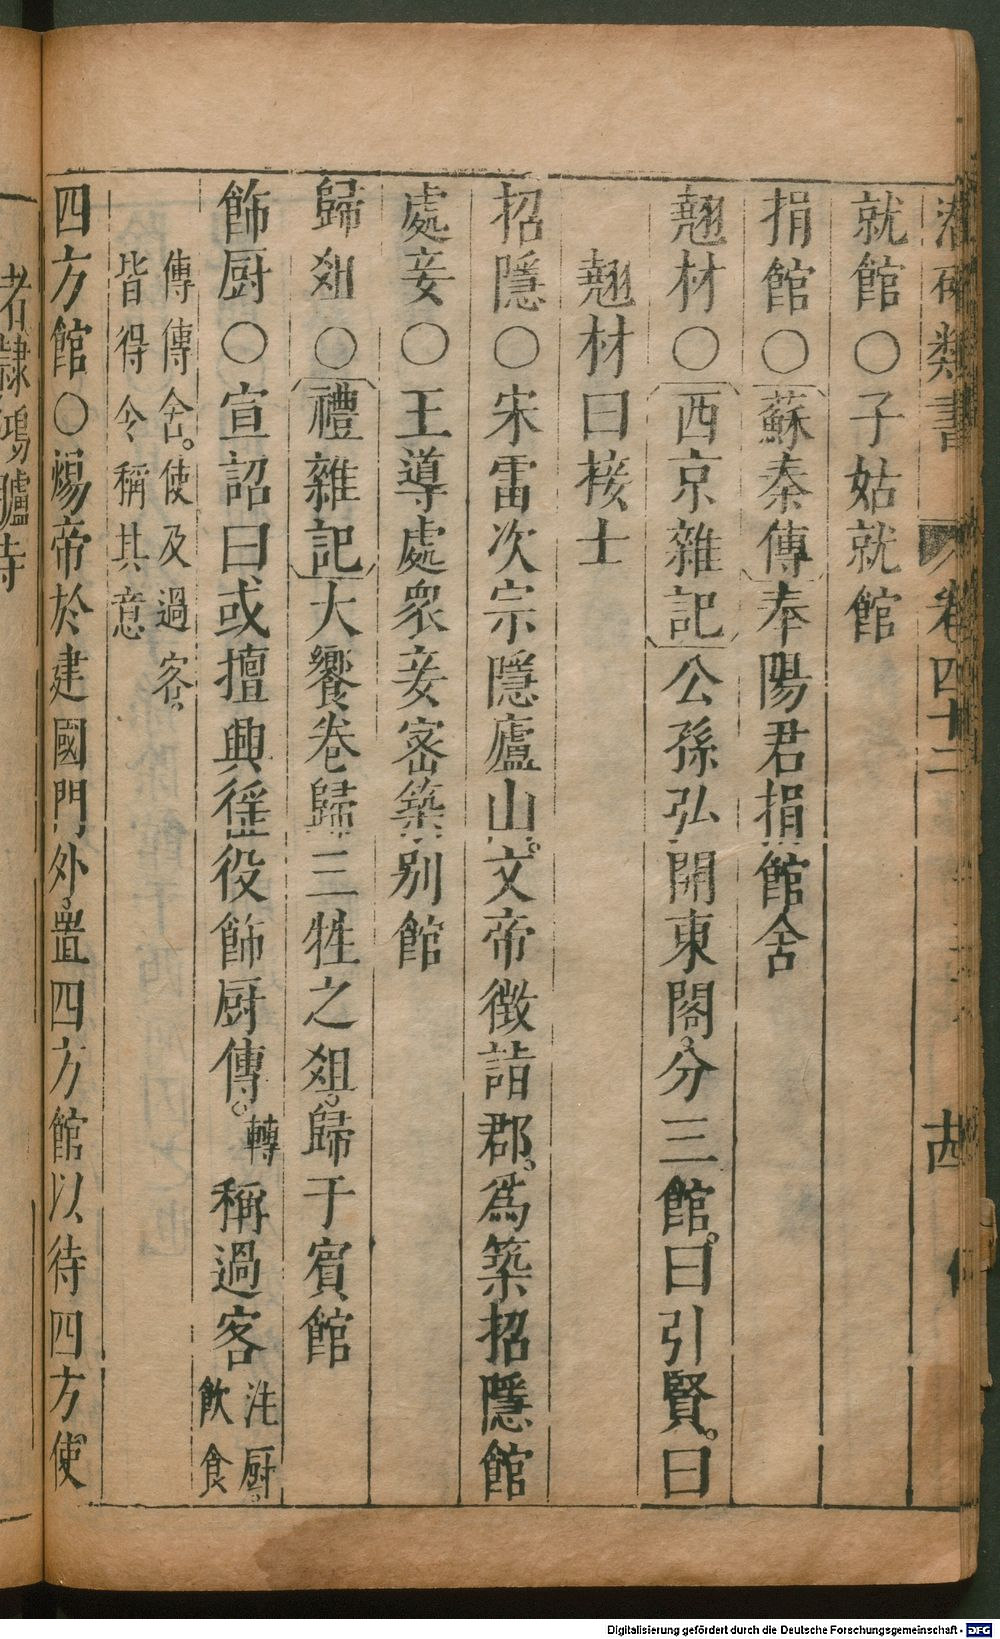 潛確類書 卷四十二
就館○子姑就館
捐館○蘇秦傳奉陽君捐館舍
翹材○西京雜記公孫弘開東閣分三館。曰引賢。曰
翹材曰接士
招隱○宋雷次宗隱廬山。文帝徵詣郡。爲築招隱館
處妾○王導處衆妾密築別館
歸俎○禮雜記大饗卷歸三牲之俎。歸于賓館
飾厨○宣詔曰或擅興徭役飾厨傳。轉稱過客注厨。飲食
傳傳舍。使及過客。皆得令稱其意
四方館○煬帝於建國門外。置四方館以待四方使
者隸鴻臚寺
Digitalisierung gefördert durch die Deutsche Forschungsgemeinschaft - DFG